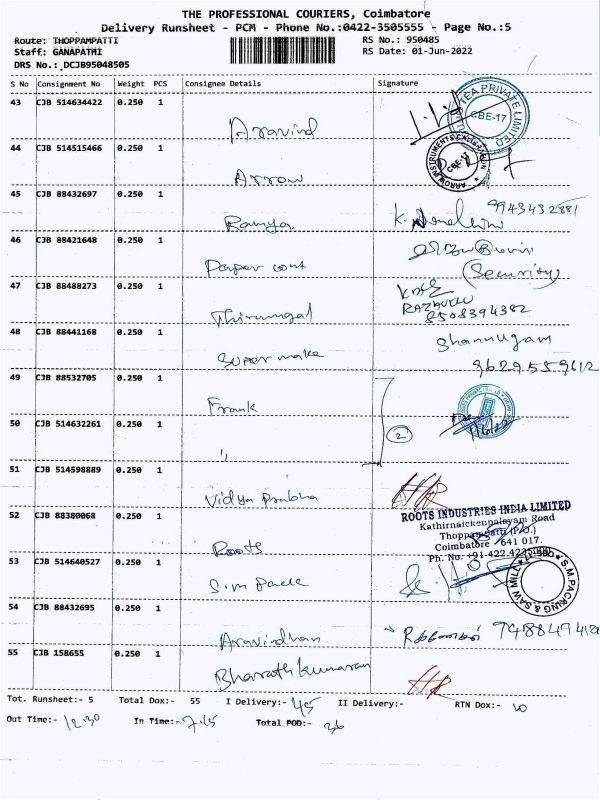 THE PROFESSIONAL COURIERS, Coimbatore
Delivery Runsheet - PCM - Phone No.:0422-3505555 - Page No.:5
Route: THOPPAMPATTI RS No.: 950485
Staff: GANAPATHI RS Date: 01-Jun-2022
DRS No.: DCJB95048505
S No Consignment No Weight PCS Consignee Details Signature
43 CJB 514634422 0.250 1 Aravind
TEA PRIVATE LIMITED
CBE-17
44 CJB 514515466 0.250 1 Arrow
CBE-17
45 CJB 88432697 0.250 1 Ramya 9943432881
46 CJB 88421648 0.250 1 Paper cont
(Security)
47 CJB 88488273 0.250 1 Thirumgal
8508394382
48 CJB 88441168 0.250 1 Super make Shanmugam
9629559612
49 CJB 88532705 0.250 1 Frank
50 CJB 514632261 0.250 1 ,, 2
51 CJB 514598889 0.250 1 Vidya Prabha
52 CJB 88380068 0.250 1 Roots
ROOTS INDUSTRIES INDIA LIMITED
Kathirnaickenpalayam Road
Thoppampatti (P.O.)
Coimbatore 641 017.
53 CJB 514640527 0.250 1 S.m pack
S.M.PACKING & SAW MILL
54 CJB 88432695 0.250 1 Aravindhan
55 CJB 158655 0.250 1 Bharath kumaran
Tot. Runsheet:- 5 Total Dox:- 55 I Delivery:- 45 II Delivery:- RTN Dox:- 10
Out Time:- 12.30 In Time:- 7.15 Total POD:- 36